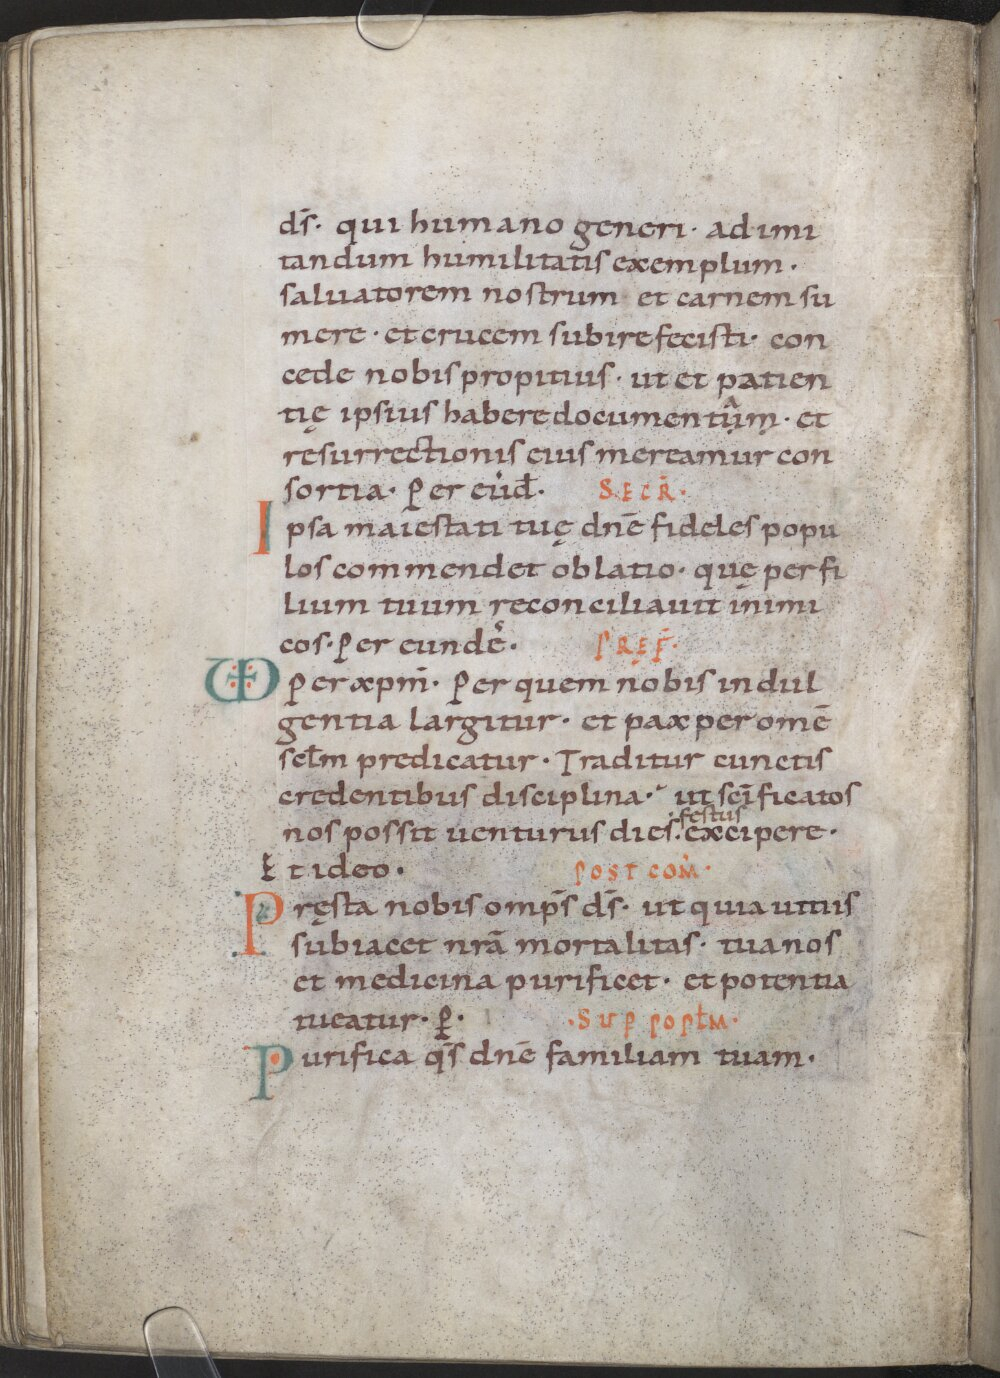 ds̄· qui humano generi· ad imi
tandum humilitatis exemplum·
saluatorem nostrum et carnem su
mere· et crucem subire fecisti· con
cede nobis propitius· ut et patien
tię ipsius habere documentum· et
resurrectionis eius mereamur con
sortia· Per eūd· SECR̄·
Ipsa maiestati tuę dn̄e fideles popu
los commendet oblatio· quę per fi
lium tuum reconciliauit inimi
cos· Per eundē· PREF̄·
Per xp̄m· Per quem nobis indul
gentia largitur· et pax per omē
sctm predicatur· Traditur cunctis
credentibus disciplina· ut sc̄ificatos
nos possit uenturus dies· festus excipere·
Et ideo· POST COM̄·
Pręsta nobis omps̄ ds̄· ut quia uitiis
subiacet nrā mortalitas· tua nos
et medicina purificet· et potentia
tueatur· p̲· ·SUP POPL̄M·
Purifica qs̄ dn̄e familiam tuam·